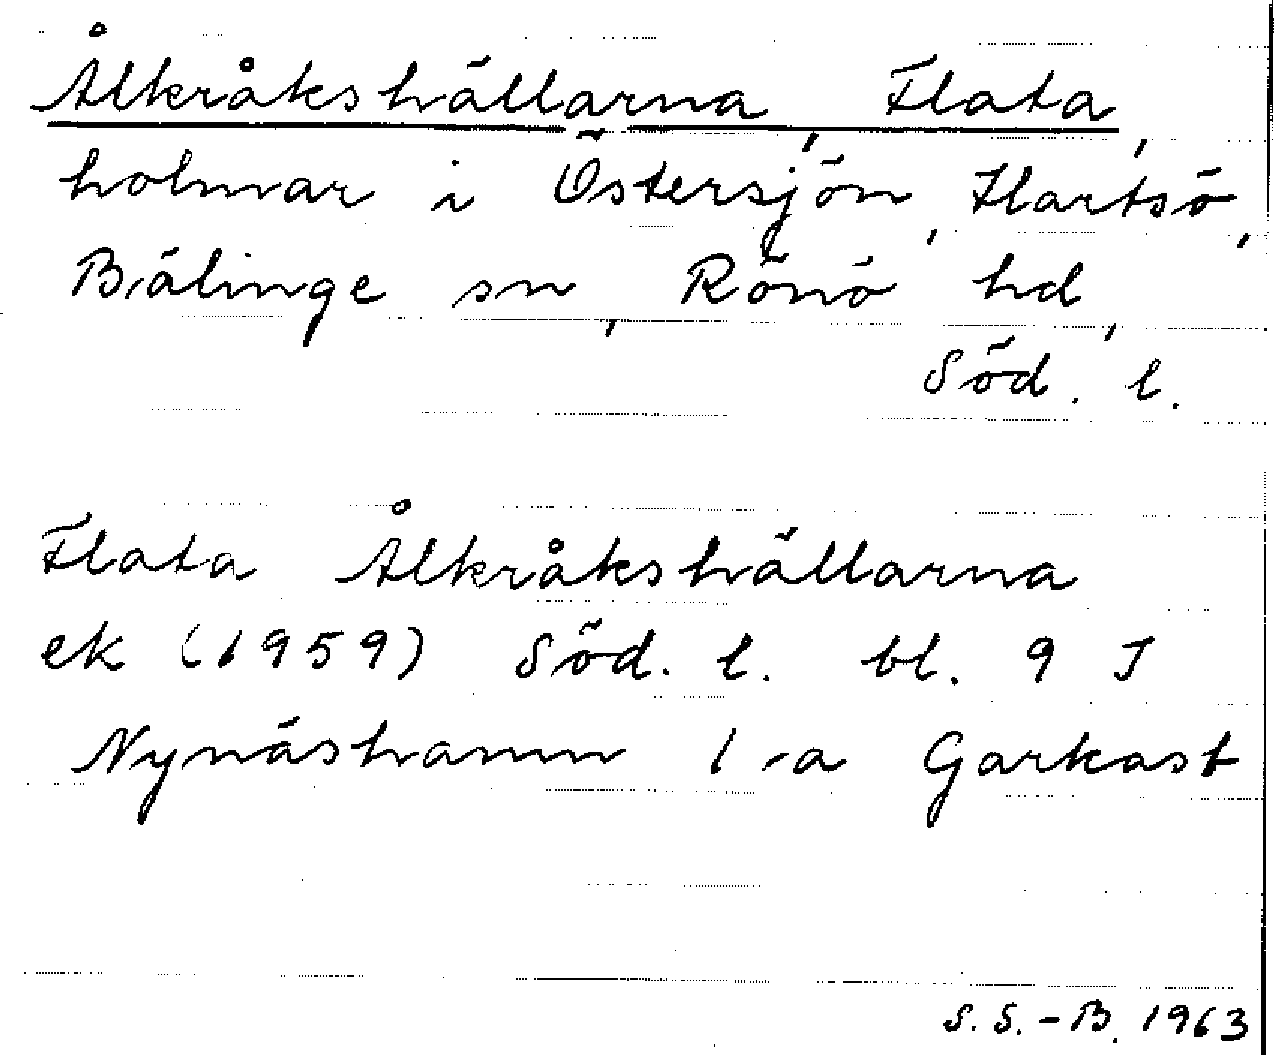 Ålkråkshällarna, Flata,
holmar i Östersjön, Hartsö,
Bälinge sn, Rönö hd,
Söd. l.
Flata Ålkråkshällarna
ek (1959) Söd. l. bl. 9 I
Nynäshamn 1-a Garkast
S. S.-B. 1963